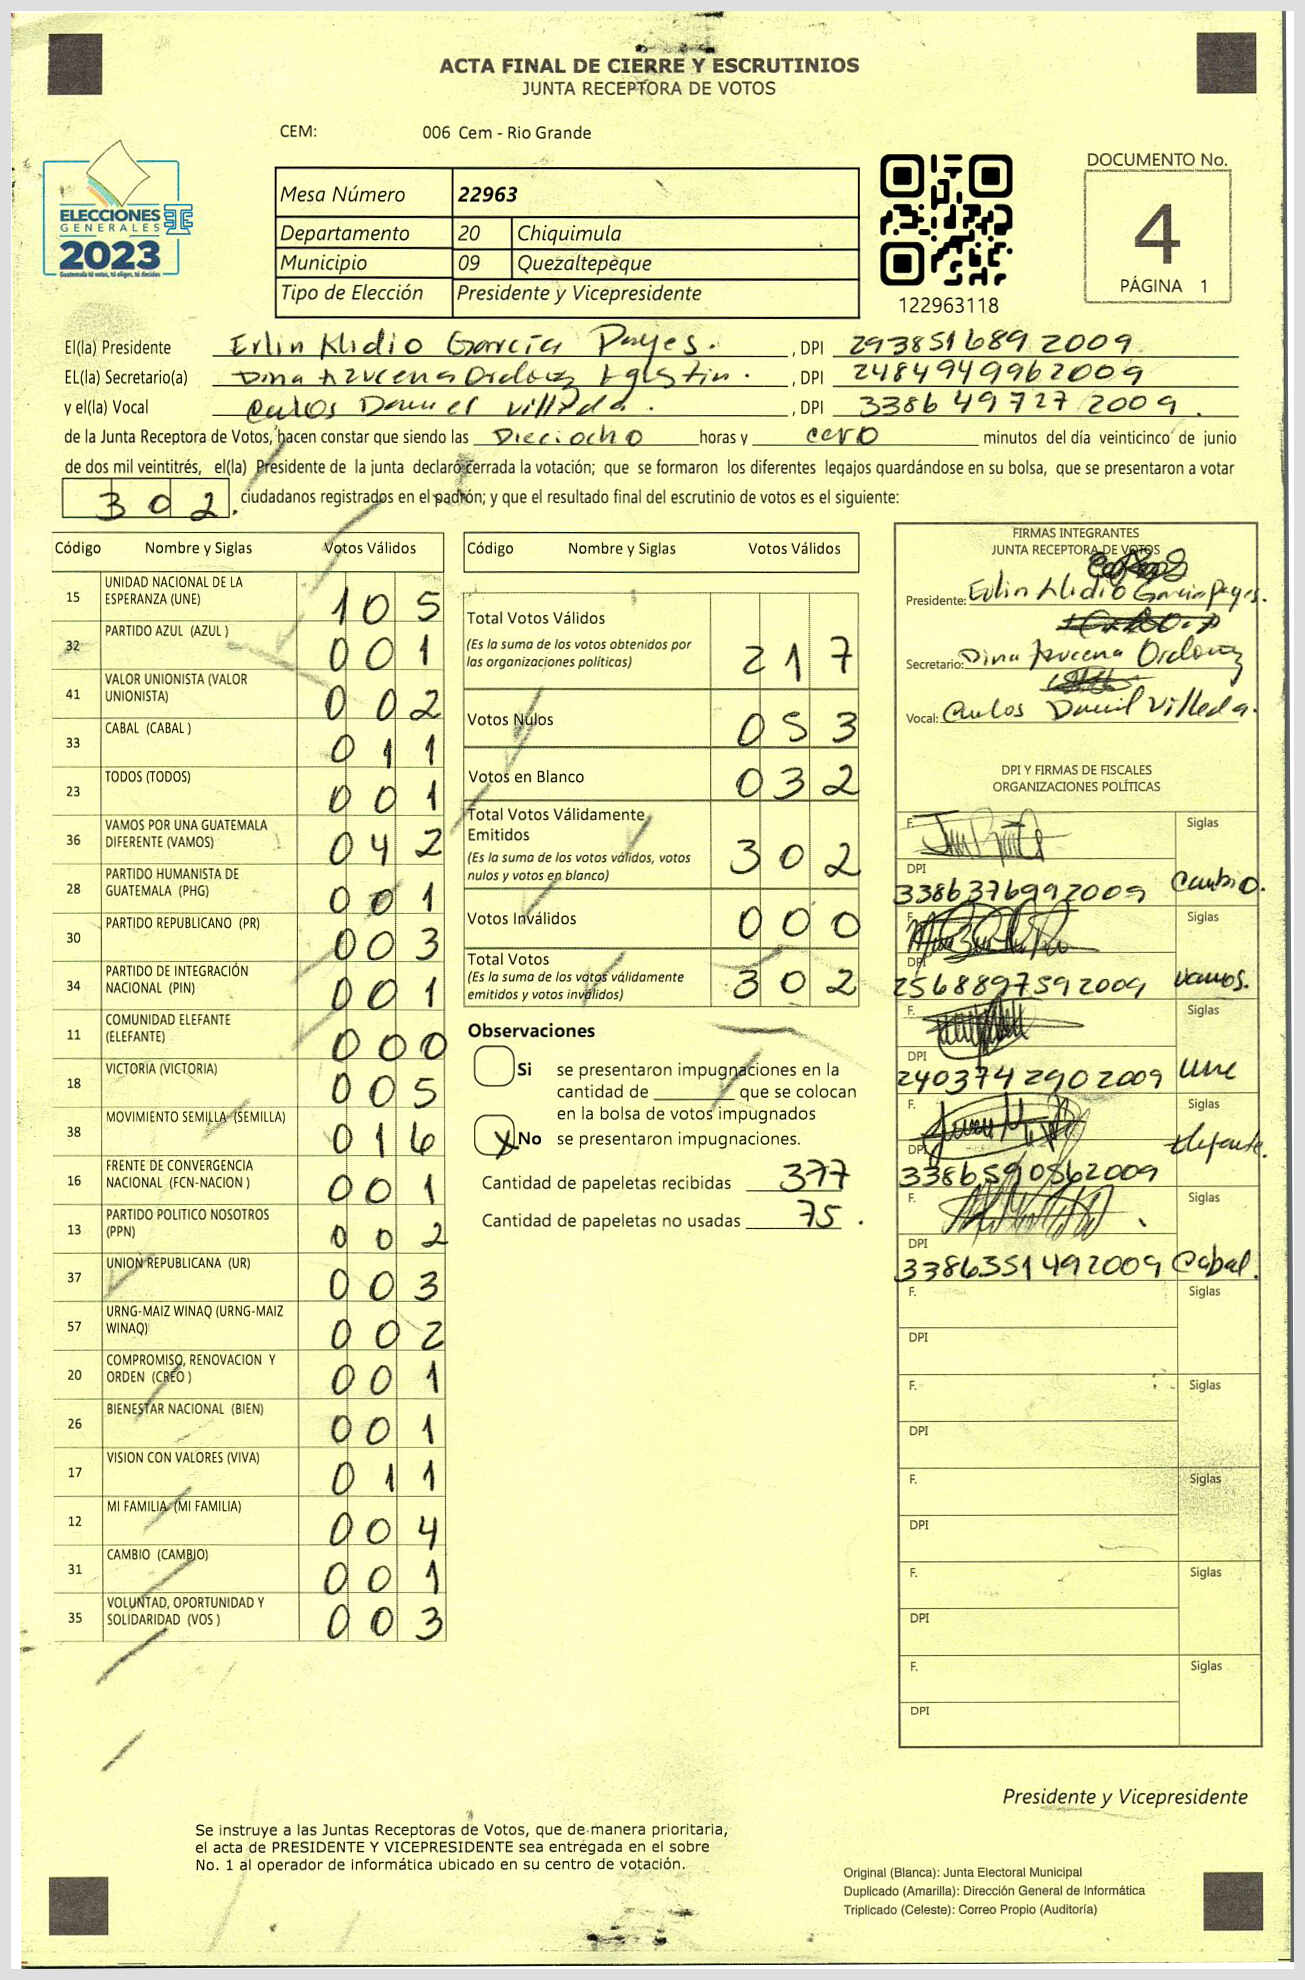 ACTA FINAL DE CIERRE Y ESCRUTINIOS
JUNTA RECEPTORA DE VOTOS
CEM: 006 Cem - Rio Grande
ELECCIONES
GENERALES
2023
Guatemala tú votas, tú eliges, tú decides
Mesa Número 22963
Departamento 20 Chiquimula
Municipio 09 Quezaltepeque
Tipo de Elección Presidente y Vicepresidente
122963118
DOCUMENTO No.
4
PÁGINA 1
El(la) Presidente Erlin Klidio García Payes. , DPI 293851689 2009
EL(la) Secretario(a) Dina Azucena Ordoñez Agustin. , DPI 2484949962009
y el(la) Vocal Carlos Daniel Villeda. , DPI 338649727 2009.
de la Junta Receptora de Votos, hacen constar que siendo las Dieciocho horas y cero minutos del día veinticinco de junio
de dos mil veintitrés, el(la) Presidente de la junta declaró cerrada la votación; que se formaron los diferentes legajos quardándose en su bolsa, que se presentaron a votar
302. ciudadanos registrados en el padrón; y que el resultado final del escrutinio de votos es el siguiente:
Código Nombre y Siglas Votos Válidos
15 UNIDAD NACIONAL DE LA ESPERANZA (UNE) 105
32 PARTIDO AZUL (AZUL ) 001
41 VALOR UNIONISTA (VALOR UNIONISTA) 002
33 CABAL (CABAL ) 011
23 TODOS (TODOS) 001
36 VAMOS POR UNA GUATEMALA DIFERENTE (VAMOS) 042
28 PARTIDO HUMANISTA DE GUATEMALA (PHG) 001
30 PARTIDO REPUBLICANO (PR) 003
34 PARTIDO DE INTEGRACIÓN NACIONAL (PIN) 001
11 COMUNIDAD ELEFANTE (ELEFANTE) 000
18 VICTORIA (VICTORIA) 005
38 MOVIMIENTO SEMILLA (SEMILLA) 016
16 FRENTE DE CONVERGENCIA NACIONAL (FCN-NACION ) 001
13 PARTIDO POLITICO NOSOTROS (PPN) 002
37 UNION REPUBLICANA (UR) 003
57 URNG-MAIZ WINAQ (URNG-MAIZ WINAQ) 002
20 COMPROMISO, RENOVACION Y ORDEN (CREO ) 001
26 BIENESTAR NACIONAL (BIEN) 001
17 VISION CON VALORES (VIVA) 011
12 MI FAMILIA (MI FAMILIA) 004
31 CAMBIO (CAMBIO) 001
35 VOLUNTAD, OPORTUNIDAD Y SOLIDARIDAD (VOS ) 003
Código Nombre y Siglas Votos Válidos
Total Votos Válidos 217
(Es la suma de los votos obtenidos por
las organizaciones políticas)
Votos Nulos 053
Votos en Blanco 032
Total Votos Válidamente
Emitidos 302
(Es la suma de los votos válidos, votos
nulos y votos en blanco)
Votos Inválidos 000
Total Votos 302
(Es la suma de los votos válidamente
emitidos y votos inválidos)
Observaciones
Si se presentaron impugnaciones en la
cantidad de ________ que se colocan
en la bolsa de votos impugnados
X No se presentaron impugnaciones.
Cantidad de papeletas recibidas 377
Cantidad de papeletas no usadas 75.
FIRMAS INTEGRANTES
JUNTA RECEPTORA DE VOTOS
Presidente: Erlin Klidio García Payes.
Secretario: Dina Azucena Ordoñez
Vocal: Carlos Daniel Villeda.
DPI Y FIRMAS DE FISCALES
ORGANIZACIONES POLÍTICAS
F. Siglas
DPI
3386376992009 Cambio.
F. Siglas
DPI
2568897592009 Vamos.
F. Siglas
DPI
2403742902009 Une
F. Siglas
DPI
3386590562009 Elefante.
F. Siglas
DPI
3386351492009 Cabal.
F. Siglas
DPI
F. Siglas
DPI
F. Siglas
DPI
F. Siglas
DPI
F. Siglas
DPI
Presidente y Vicepresidente
Se instruye a las Juntas Receptoras de Votos, que de manera prioritaria,
el acta de PRESIDENTE Y VICEPRESIDENTE sea entregada en el sobre
No. 1 al operador de informática ubicado en su centro de votación.
Original (Blanca): Junta Electoral Municipal
Duplicado (Amarilla): Dirección General de Informática
Triplicado (Celeste): Correo Propio (Auditoría)